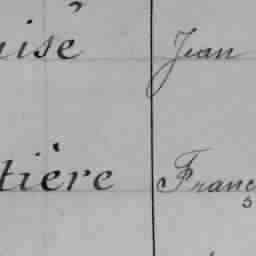 uisé Jean
tière Franç